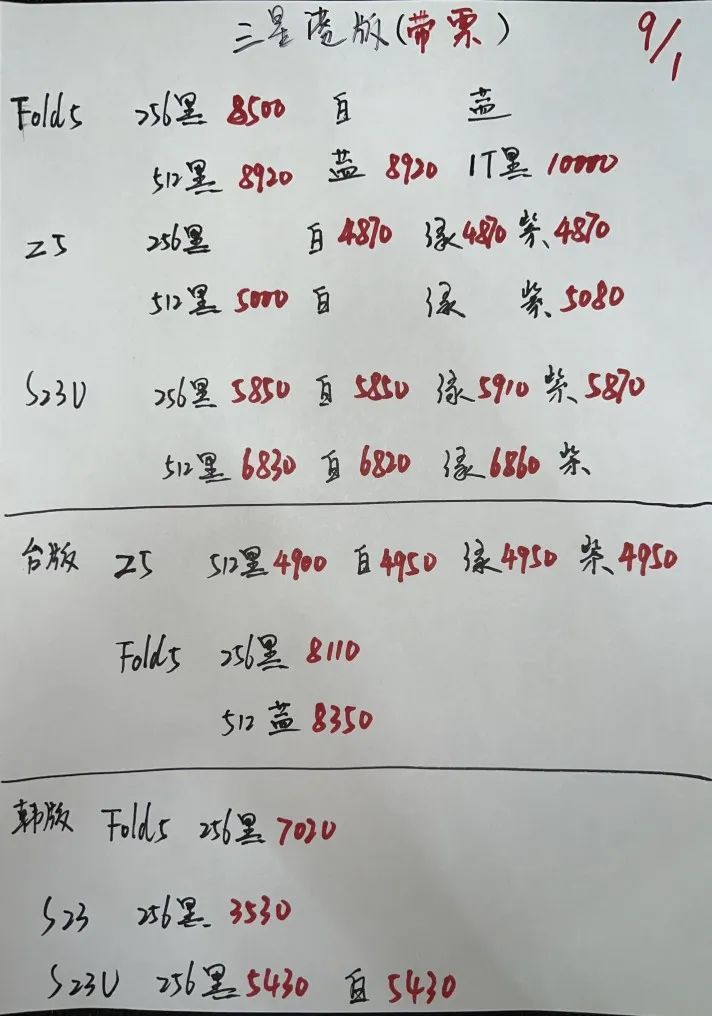 三星港版(带票) 9/1
Fold5 256黑 8500 白 蓝
512黑 8920 蓝 8920 1T黑 10000
Z5 256黑 白 4870 绿 4870 紫 4870
512黑 5000 白 绿 紫 5080
S23U 256黑 5850 白 5850 绿 5910 紫 5870
512黑 6830 白 6820 绿 6860 紫
台版 Z5 512黑 4900 白 4950 绿 4950 紫 4950
Fold5 256黑 8110
512 蓝 8350
韩版 Fold5 256黑 7020
S23 256黑 3530
S23U 256黑 5430 白 5430